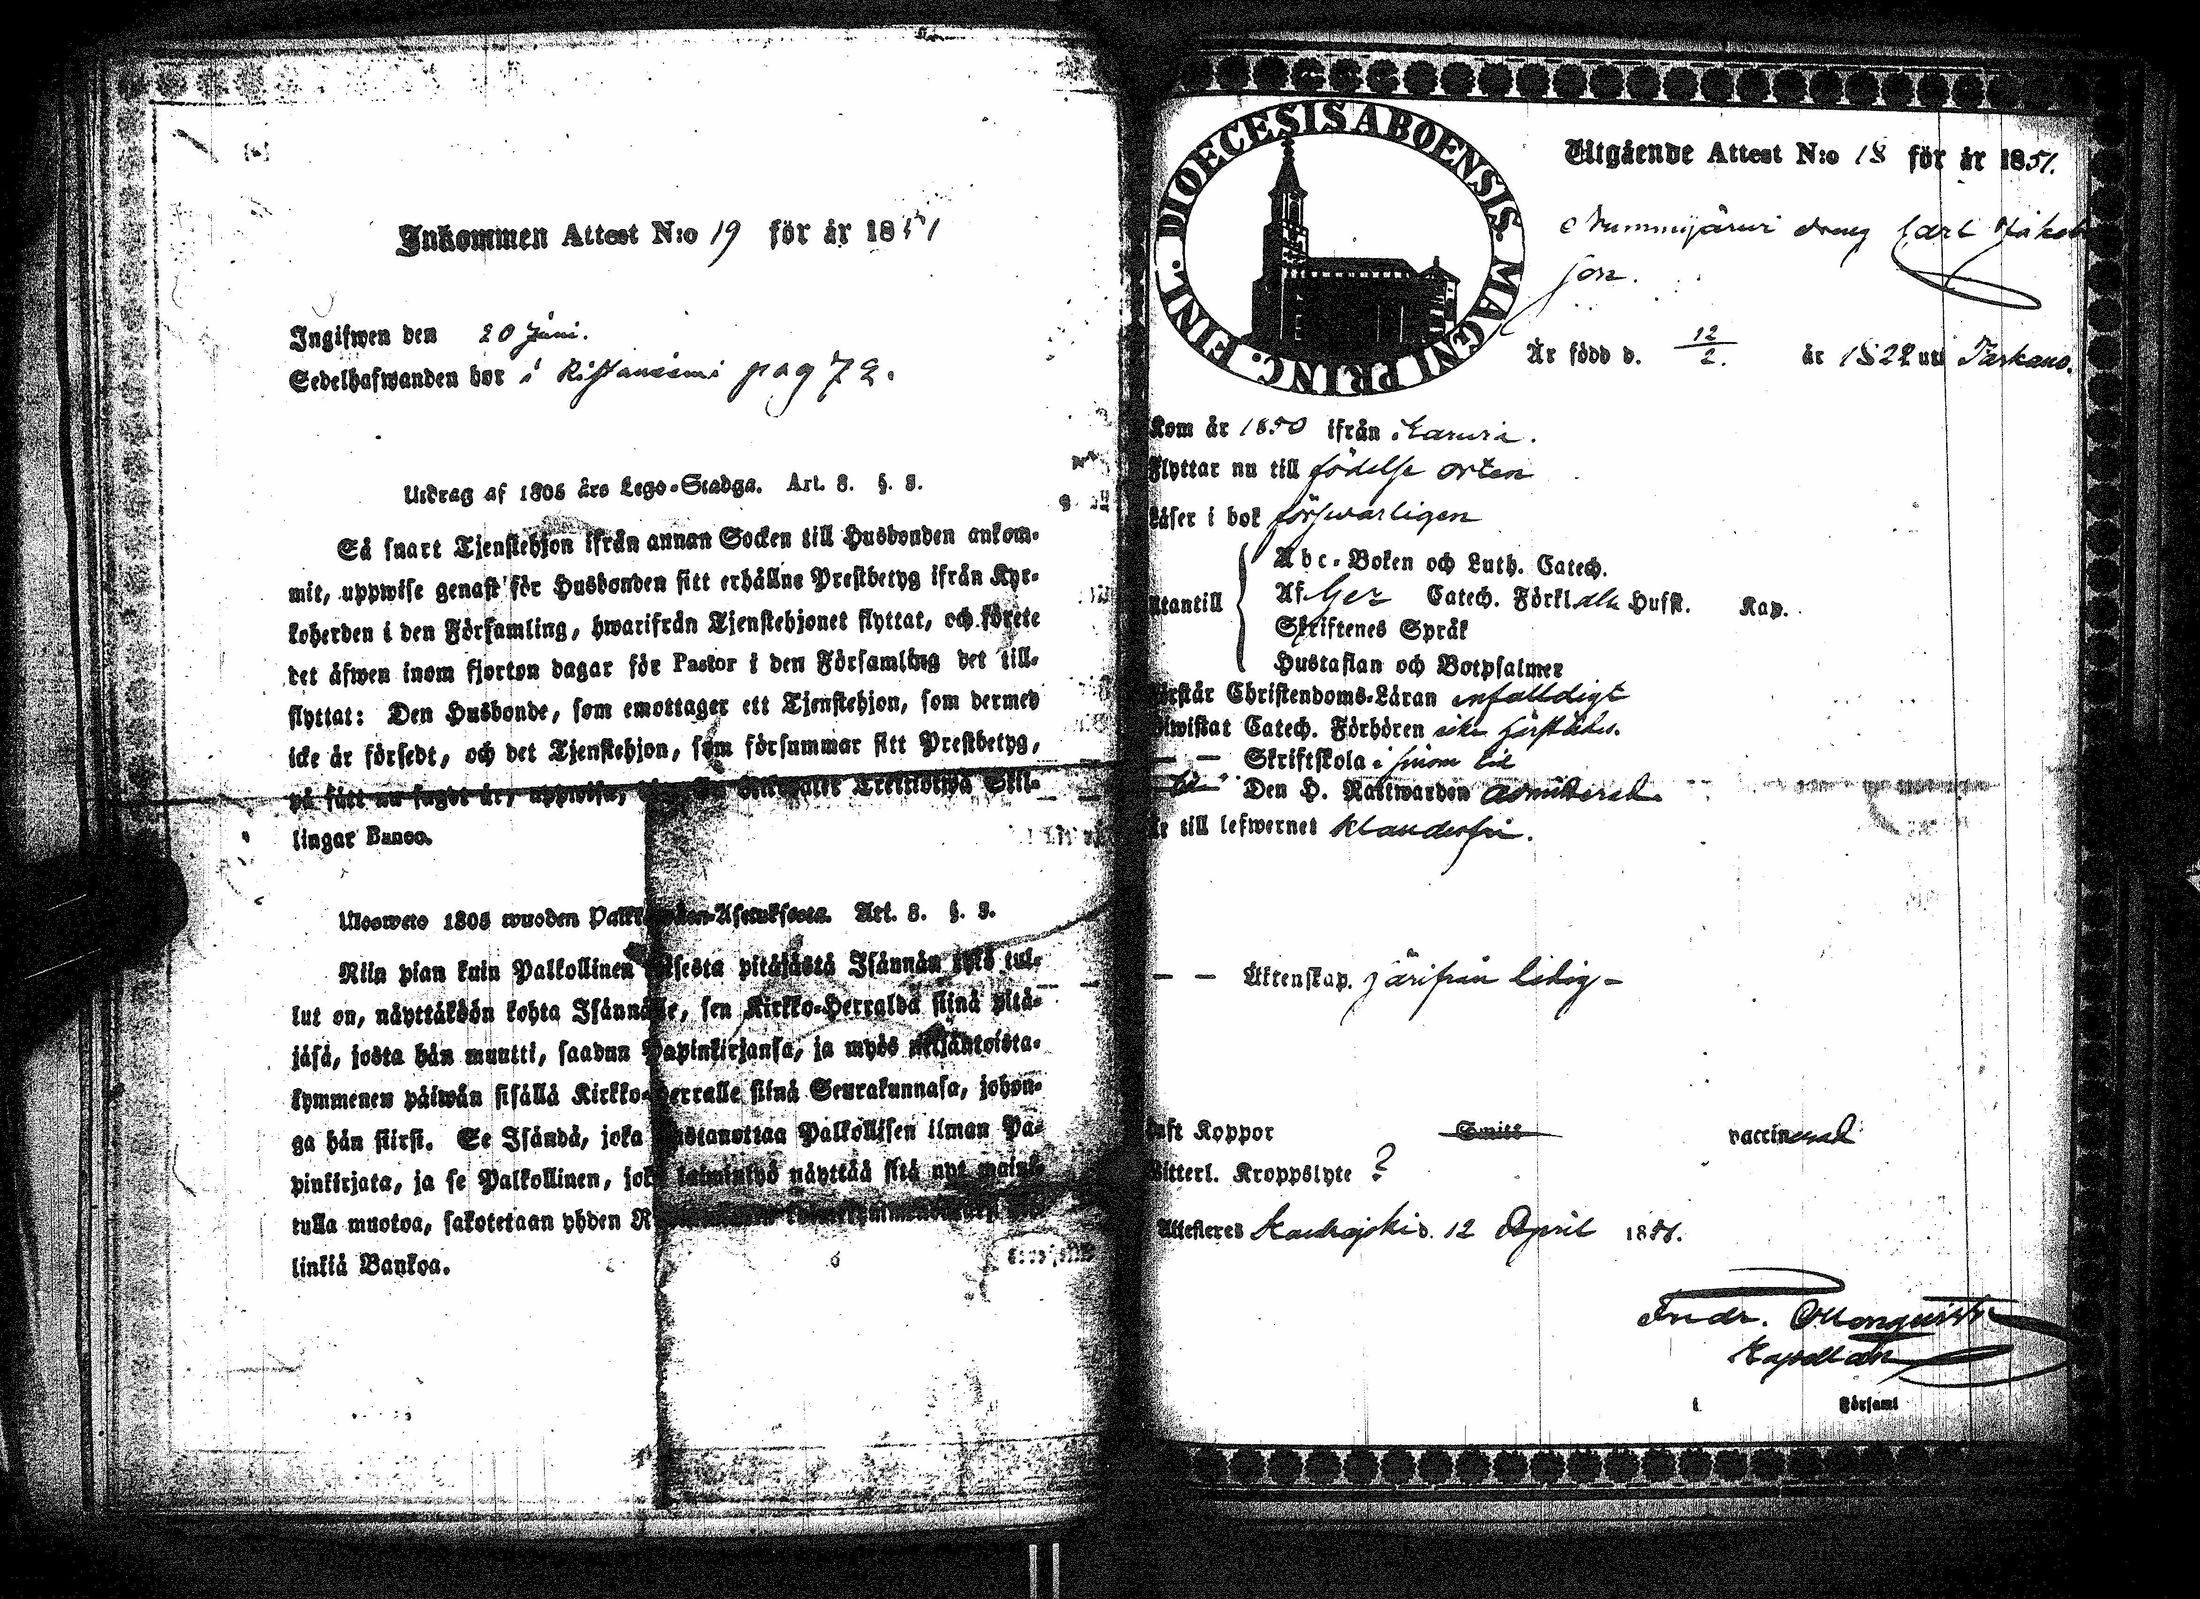 Inkommen Attest N:o 19 för år 1851
Ingifwen den 20 Juni.
Sedelhafwanden bor i pag 72.
Utdrag af 1805 års Lego-Stadga. Art. 8. §. 3.
Så snart Tjenstehjon ifrån annan Socken till Husbonden ankom-
mit, uppwise genast för Husbonden sitt erhållne Prestbetyg ifrån Kyr-
koherden i den Församling, hwarifrån Tjenstehjonet flyttat, och förete
det äfwen inom fjorton dagar för Pastor i den Församling det till-
flyttat: Den Husbonde, som emottager ett Tjenstehjon, som dermed
icke är försedt, och det Tjenstehjon, som försummar sitt Prestbetyg,
på sätt nu sagdt är, uppwisa, Skil-
lingar Banco.
Ulosweto 1805 wuoden Art. 8. §. 3.
Niin pian kuin Palkollinen pitäjästä Isännän tul-
lut on, näyttäkään kohta Isännälle, sen Kirkko-Herralda siinä pitä-
jäsä, josta hän muutti, saadun Papinkirjansa, ja myös
kymmenen päiwän sisällä Kirkko-Herralle siinä Seurakunnasa, johon-
ga hän siirsi. Se Isändä, joka wastanottaa Palkollisen ilman Pa-
pinkirjata, ja se Palkollinen, joka näyttää sitä nyt
tulla muotoa, sakotetaan yhden
linkiä Bankoa.
DIOECESIS ABOENSIS. MAGNI PRINC. FINL.
Utgående Attest N:o 18 för år 1851.
Nummijärwi dreng Carl Jakob
son.
Är född d. 12/2. år 1822 uti Parkano.
Kom år 1850 ifrån Karwia.
Flyttar nu till födelse orten
Läser i bok förswarligen
Utantill
Abc-Boken och Luth. Catech.
Af Catech. Förkl. alla Hufst. Kap.
Skriftenes Språk
Hustaflan och Botpsalmer
Förstår Christendoms-Läran enfalldigt
Bewistat Catech. Förhören
— — Skriftskola i sinom tid
Den H. Nattwarden admitterad.
Är till lefwernet klanderfri.
— — Äktenskap. härifrån ledig —
Haft Koppor vaccinerad
Witterl. Kroppslyte ?
Attesteres Kauhajoki d. 12 April 1851.
Fredr.
Kapellan
i Församl